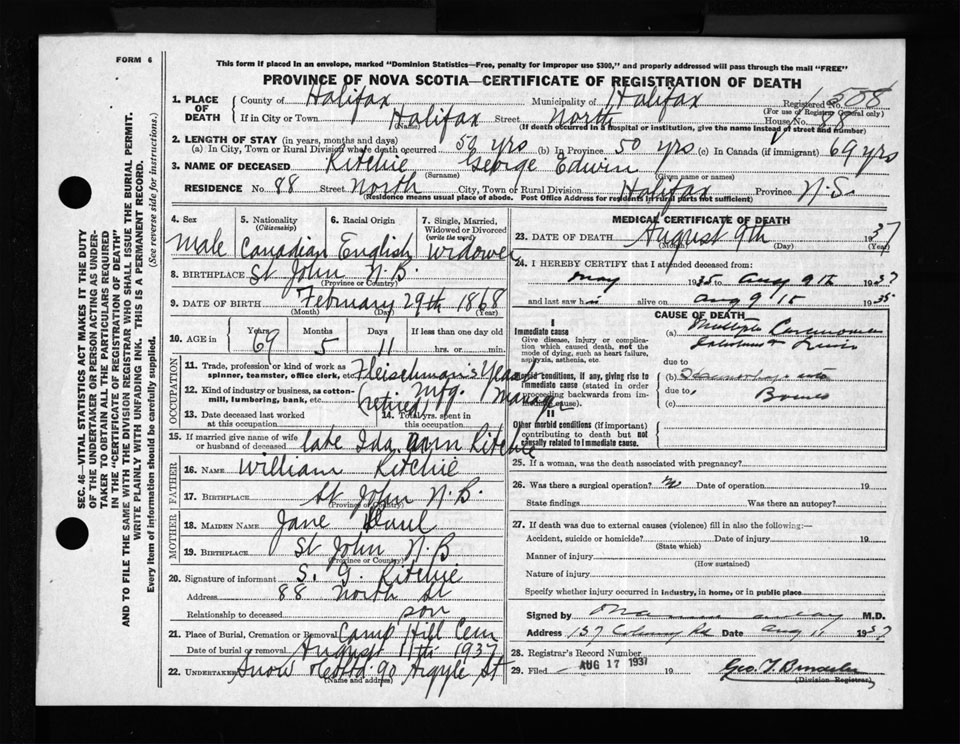 FORM 6
This form if placed in an envelope, marked "Dominion Statistics—Free, penalty for improper use $300," and properly addressed will pass through the mail "FREE"
PROVINCE OF NOVA SCOTIA—CERTIFICATE OF REGISTRATION OF DEATH
1. PLACE OF DEATH County of Halifax Municipality of Halifax Registered No. 1588
(For use of Registrar General only)
If in City or Town Halifax Street North House No. 88
(Name) (If death occurred in a hospital or institution, give the name instead of street and number)
2. LENGTH OF STAY (in years, months and days)
(a) In City, Town or Rural Division where death occurred 50 yrs (b) In Province 50 yrs (c) In Canada (if immigrant) 69 yrs
3. NAME OF DECEASED Ritchie George Edwin
(Surname) (Given name or names)
RESIDENCE No. 88 Street North City, Town or Rural Division Halifax Province N.S.
(Residence means usual place of abode. Post Office Address for residents in rural parts not sufficient)
4. Sex
male
5. Nationality
(Citizenship)
Canadian
6. Racial Origin
English
7. Single, Married, Widowed or Divorced
(write the word)
Widower
8. BIRTHPLACE St John N.B.
(Province or Country)
9. DATE OF BIRTH February 29th 1868
(Month) (Day) (Year)
10. AGE in Years Months Days If less than one day old
69 5 11 hrs. or min.
OCCUPATION
11. Trade, profession or kind of work as spinner, teamster, office clerk, etc. Fleischman's Yeast
12. Kind of industry or business, as cotton-mill, lumbering, bank, etc. Mfg. Manager
(retired)
13. Date deceased last worked at this occupation
14. Total yrs. spent in this occupation
15. If married give name of wife or husband of deceased late Ida Ann Ritchie
FATHER
16. NAME William Ritchie
17. BIRTHPLACE St John N.B.
(Province or Country)
MOTHER
18. MAIDEN NAME Jane Paul
19. BIRTHPLACE St John N.B
(Province or Country)
20. Signature of informant S. G. Ritchie
Address 88 North St
Relationship to deceased son
21. Place of Burial, Cremation or Removal Camp Hill Cem
Date of burial or removal August 11th 1937
22. UNDERTAKER Snow 90 Argyle St
(Name and address)
MEDICAL CERTIFICATE OF DEATH
23. DATE OF DEATH August 9th 1937
(Month) (Day) (Year)
24. I HEREBY CERTIFY that I attended deceased from:
May 1935 to Aug 9th 1937
and last saw h alive on Aug 9 19
CAUSE OF DEATH
I
Immediate cause
Give disease, injury or complication which caused death, not the mode of dying, such as heart failure, asphyxia, asthenia, etc.
(a) Multiple
due to
Morbid conditions, if any, giving rise to immediate cause (stated in order proceeding backwards from immediate cause).
(b) Haemorrhage into
due to
(c)
II
Other morbid conditions (if important) contributing to death but not causally related to immediate cause.
25. If a woman, was the death associated with pregnancy?
26. Was there a surgical operation? no Date of operation 19
State findings Was there an autopsy?
27. If death was due to external causes (violence) fill in also the following:—
Accident, suicide or homicide? Date of injury 19
(State which)
Manner of injury
(How sustained)
Nature of injury
Specify whether injury occurred in industry, in home, or in public place
Signed by M.D.
Address 157 Date Aug 11 1937
28. Registrar's Record Number
29. Filed AUG 17 1937 19 Geo. T.
(Division Registrar)
SEC. 46—VITAL STATISTICS ACT MAKES IT THE DUTY
OF THE UNDERTAKER OR PERSON ACTING AS UNDER-
TAKER TO OBTAIN ALL THE PARTICULARS REQUIRED
IN THE "CERTIFICATE OF REGISTRATION OF DEATH"
AND TO FILE THE SAME WITH THE DIVISION REGISTRAR WHO SHALL ISSUE THE BURIAL PERMIT.
WRITE PLAINLY WITH UNFADING INK. THIS IS A PERMANENT RECORD.
Every item of information should be carefully supplied. (See reverse side for instructions.)